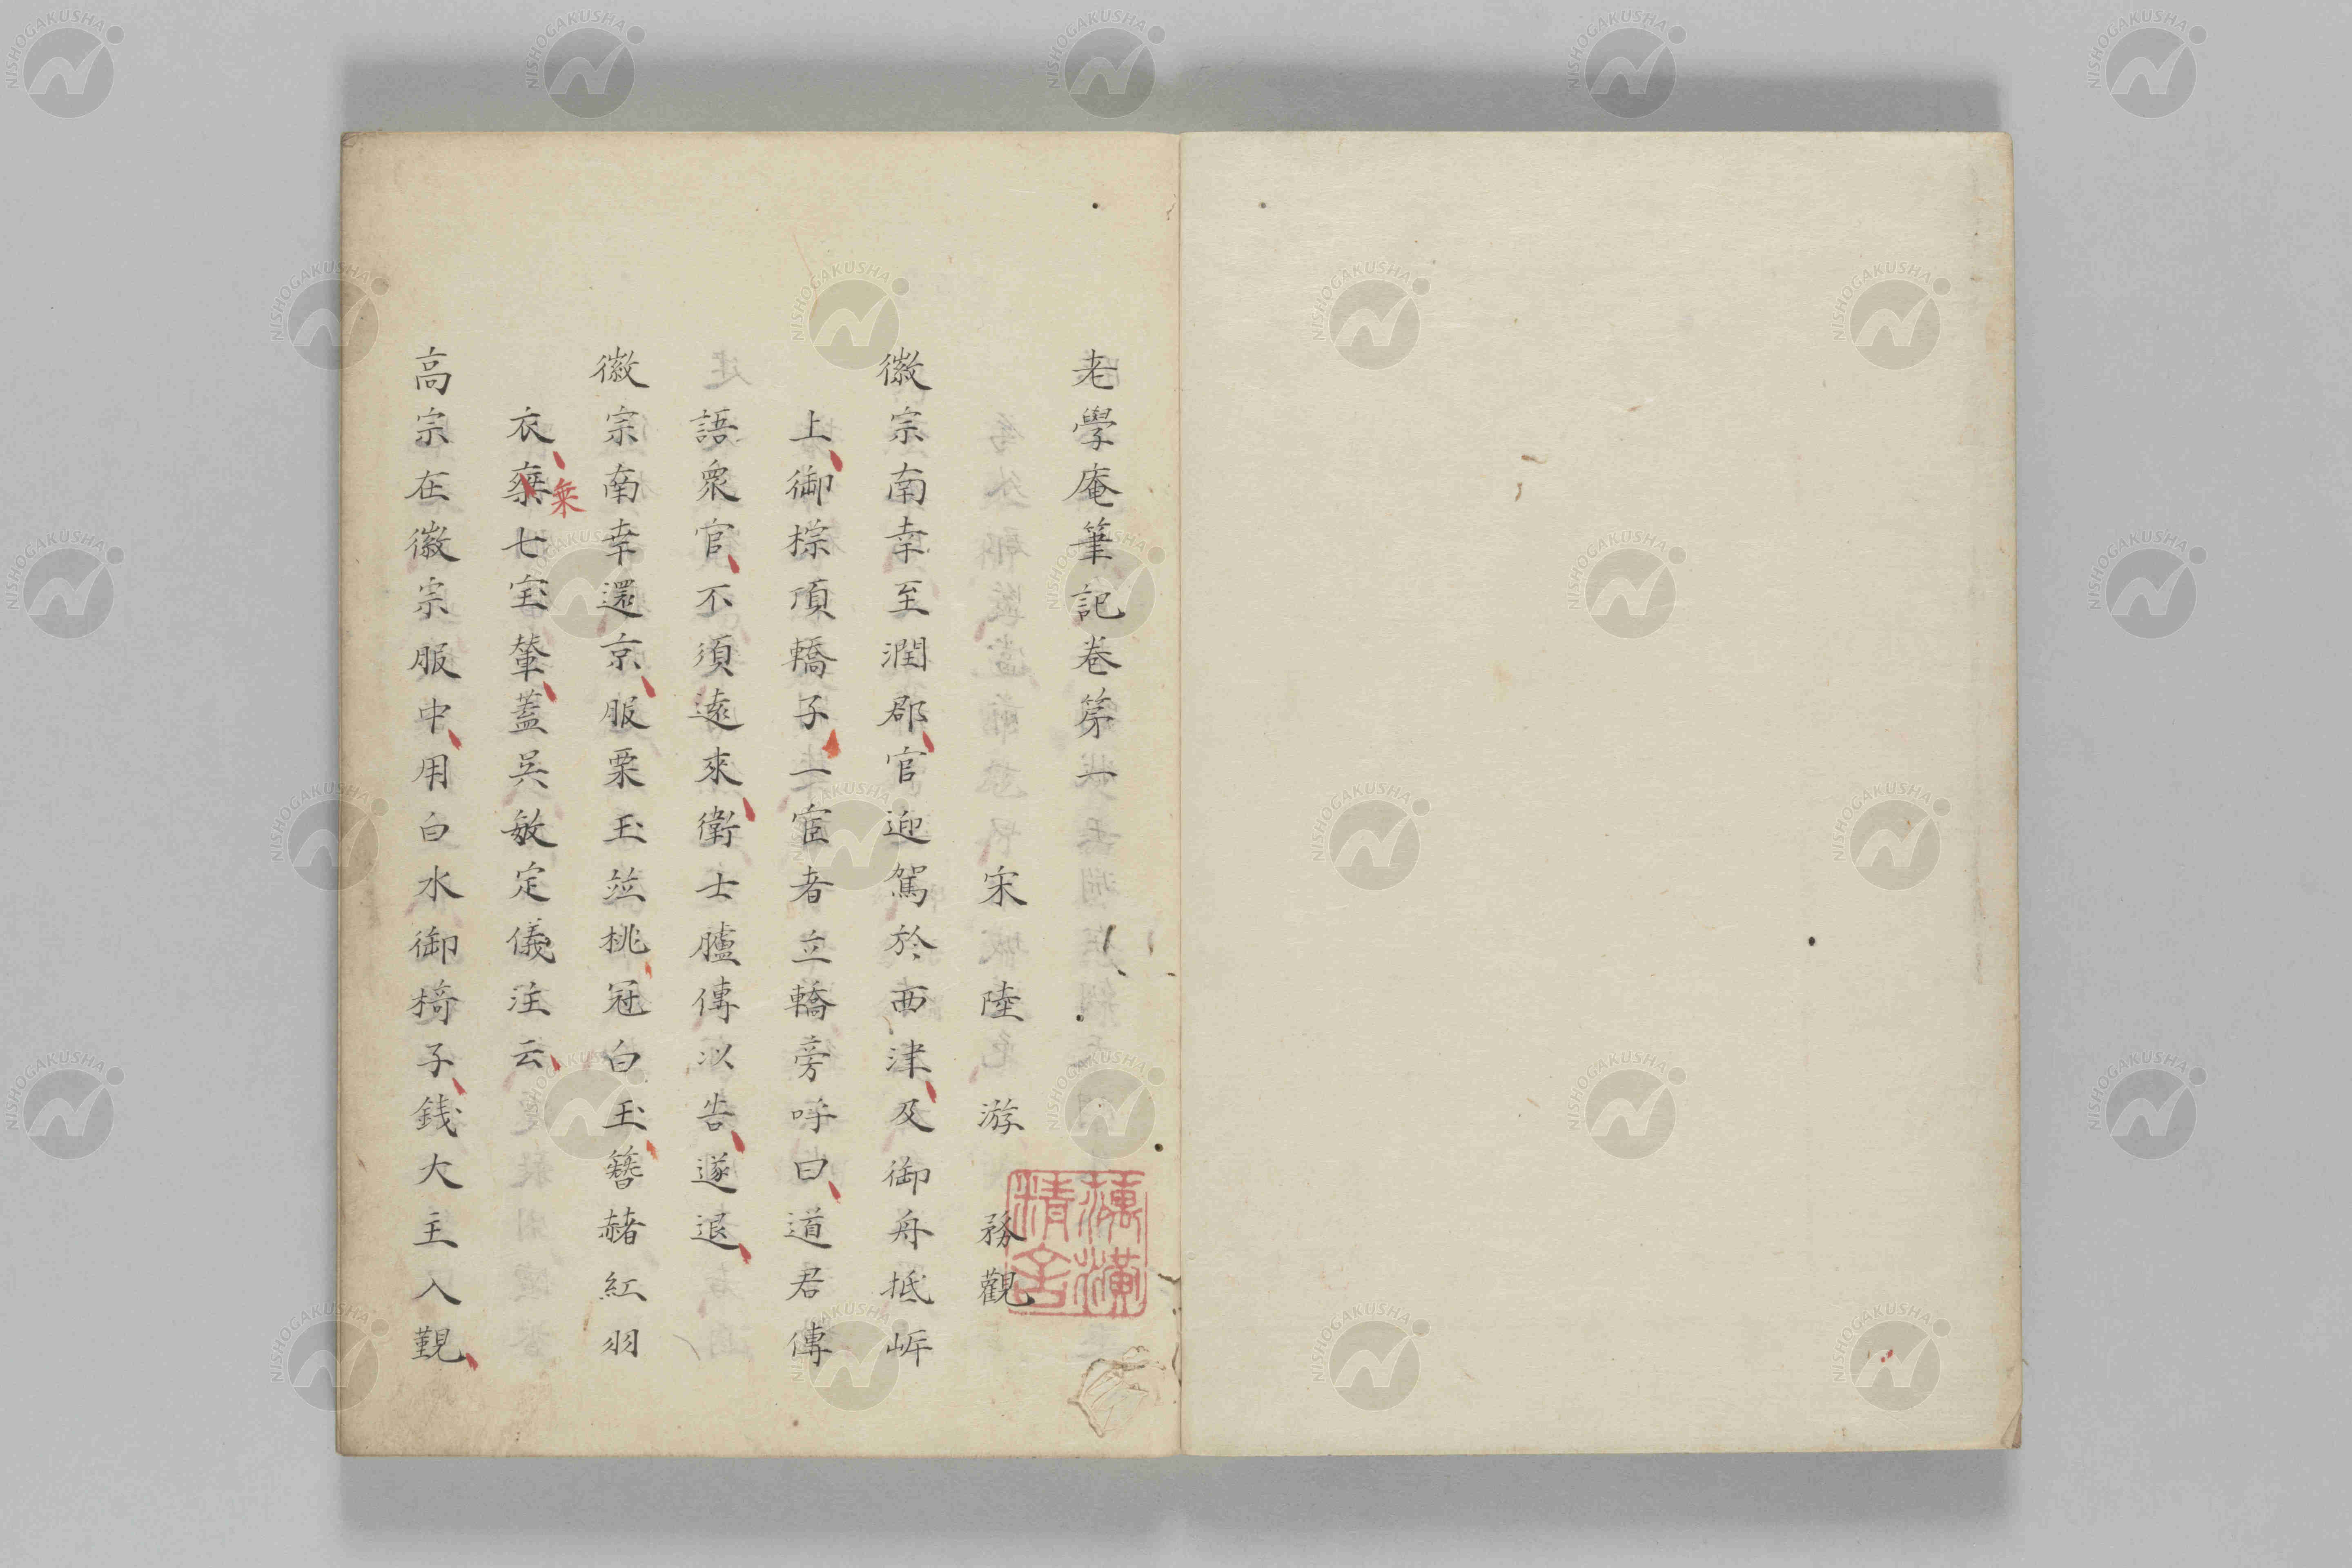 老學庵筆記卷第一
宋陸游務觀
徽宗南幸至潤郡官迎駕於西津及御舟抵岍
上御椶頂轎子一宦者立轎旁呼曰道君傳
語衆官不須遠來衛士臚傳以告遂退
徽宗南幸還京服栗玉竝桃冠白玉簪赭紅羽
衣藥七宝輦蓋吳敏定儀注云
乗
高宗在徽宗服中用白水御椅子錢大主入覲
精舍
NISHOGAKUSHA